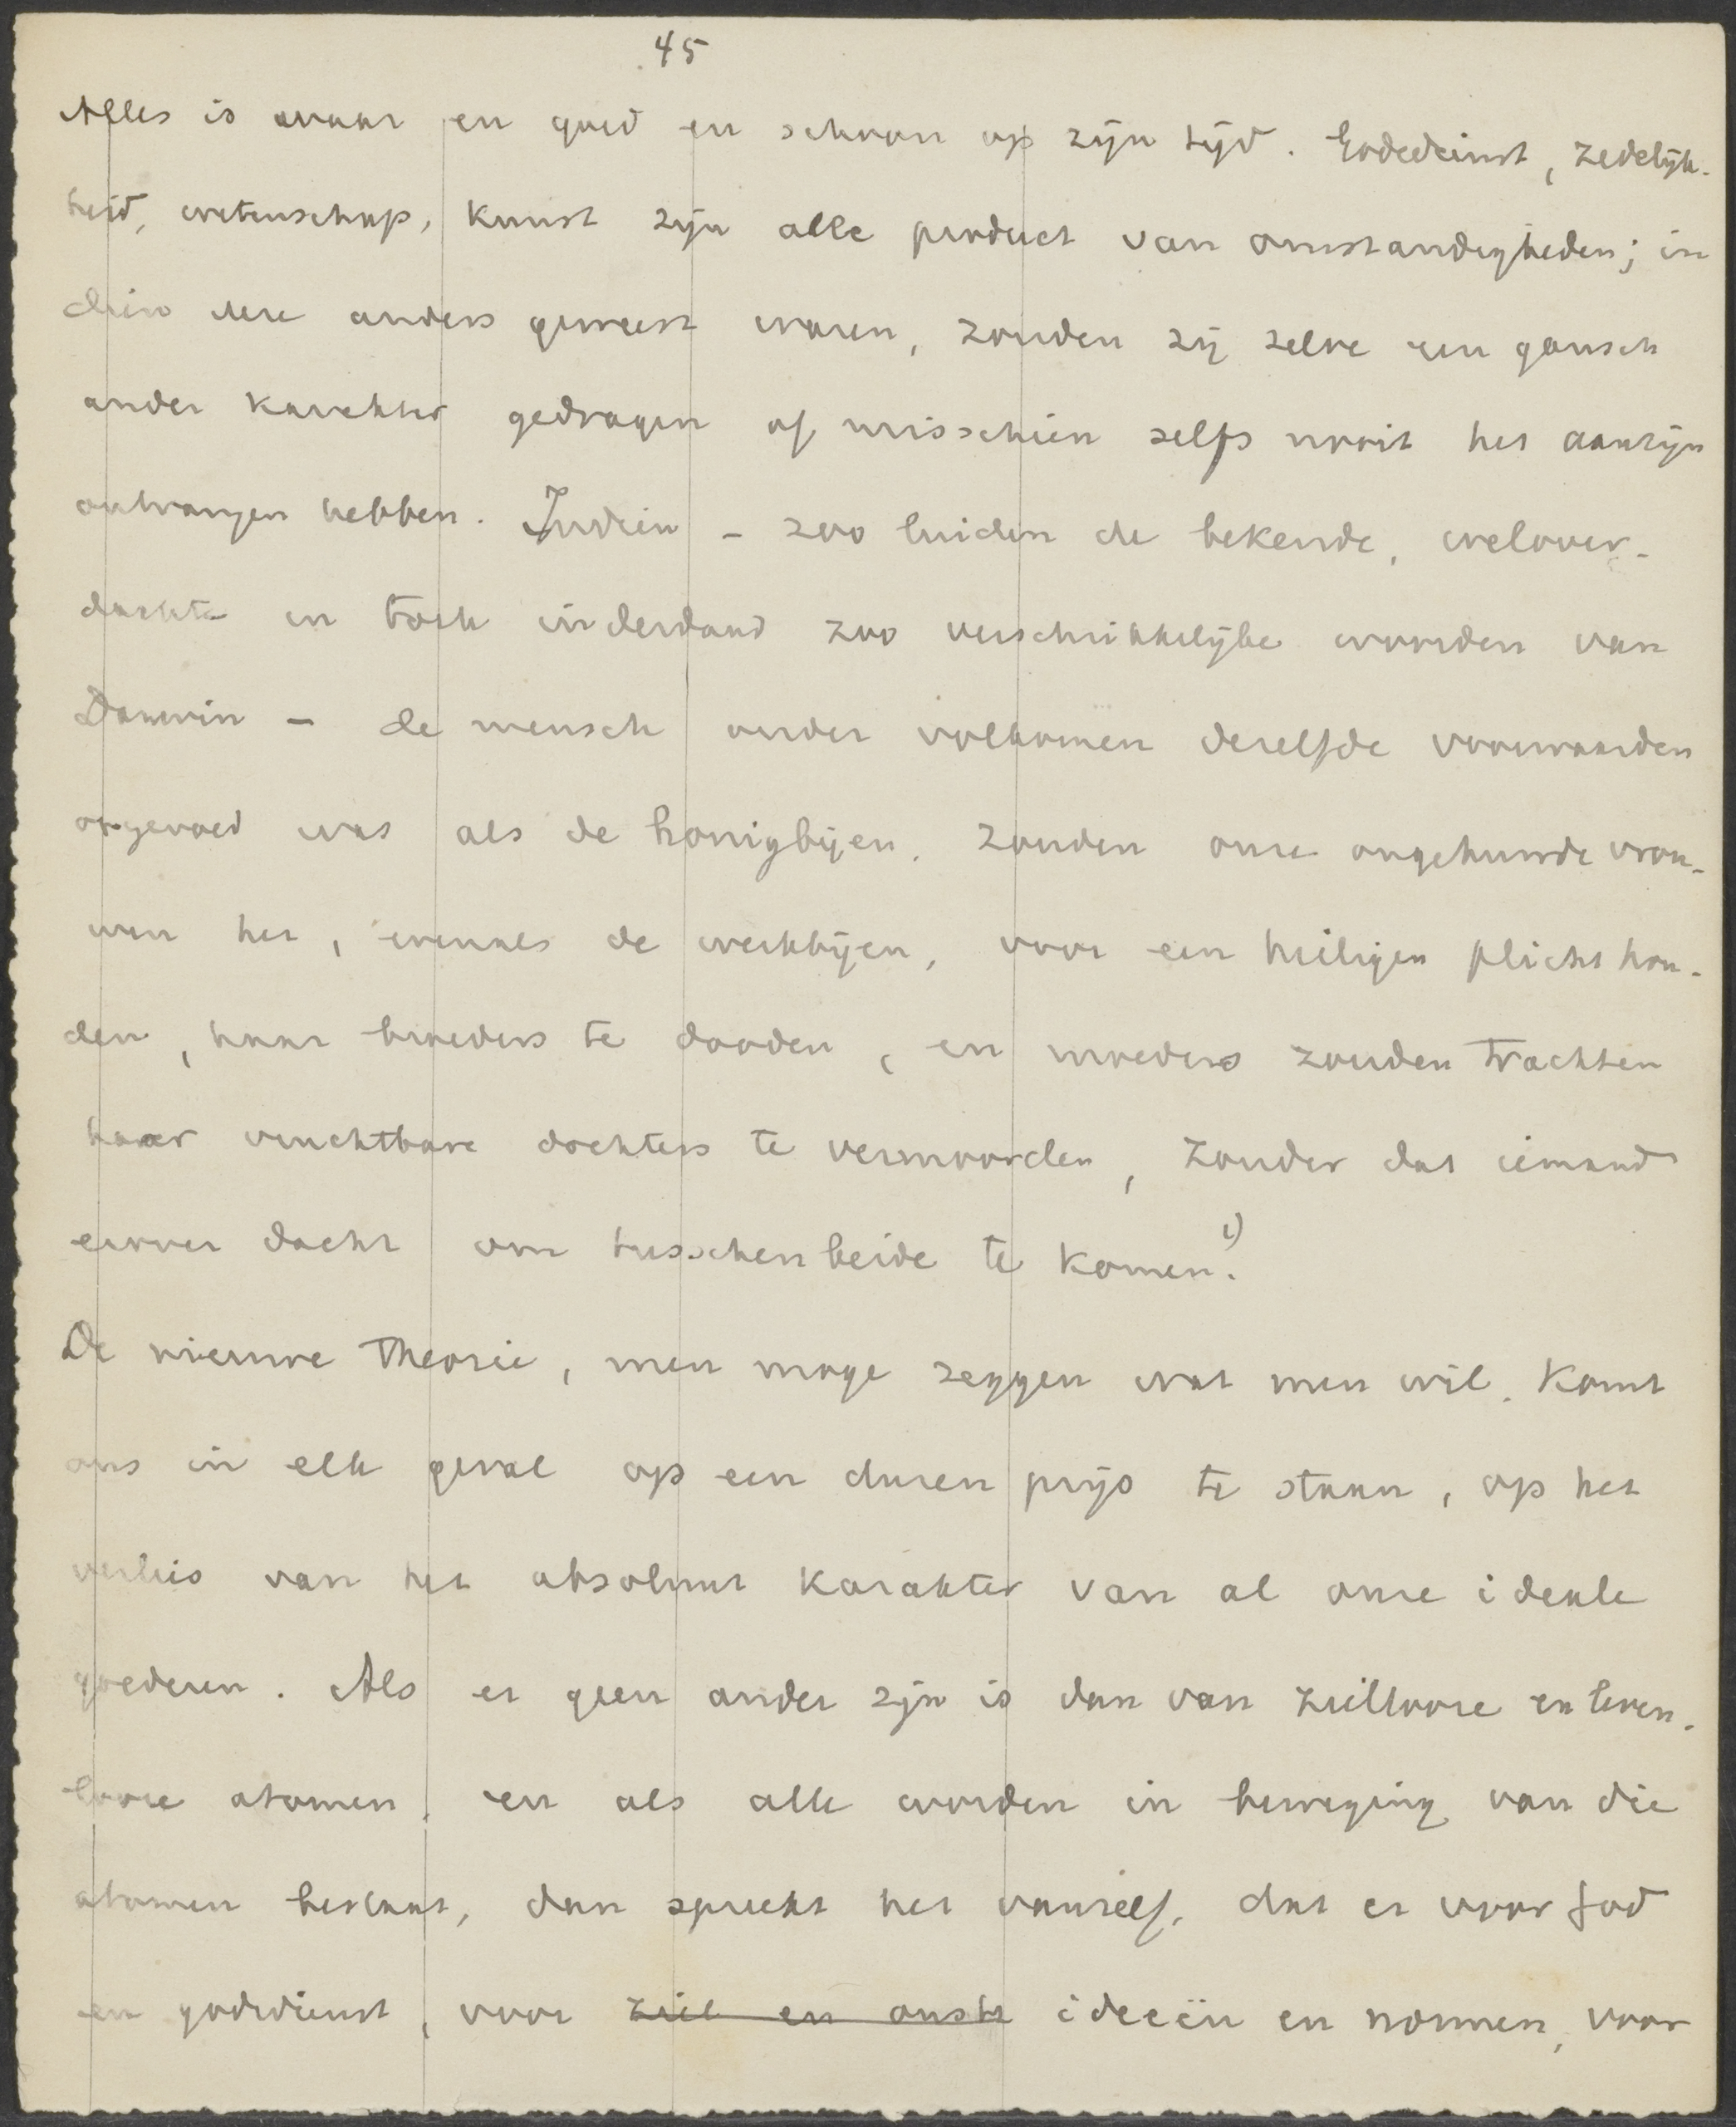 45
Alles is waar en goed en schoon op zijn tijd. Godsdienst, zedelijk-
heid, wetenschap, kunst zijn alle product van omstandigheden; in
dien deze anders geweest waren, zouden zij zelve een gansch
ander karakter gedragen of misschien zelfs nooit het aanzijn
ontvangen hebben. Indien – zoo luiden de bekende, welover-
dachte en toch inderdaad zoo verschrikkelijke woorden van
Darwin – de mensch onder volkomen dezelfde voorwaarden
opgevoed was als de honigbijen, zouden onze ongehuwde vrou-
wen het, evenals de werkbijen, voor een heiligen plicht hou-
den, haar broeders te dooden, en moeders zouden trachten
haar vruchtbare dochters te vermoorden, zonder dat iemand
eraan dacht om tusschenbeide te komen. 1)
De nieuwe theorie, men moge zeggen wat men wil, komt
ons in elk geval op een duren prijs te staan, op het
verlies van het absoluut karakter van al onze ideale
goederen. Als er geen ander zijn is dan van ziellooze en leven-
looze atomen, en als alle worden in beweging van die
atomen bestaat, dan spreekt het vanzelf, dat er voor God
en godsdienst, voor ziel en onst ideeën en normen, voor